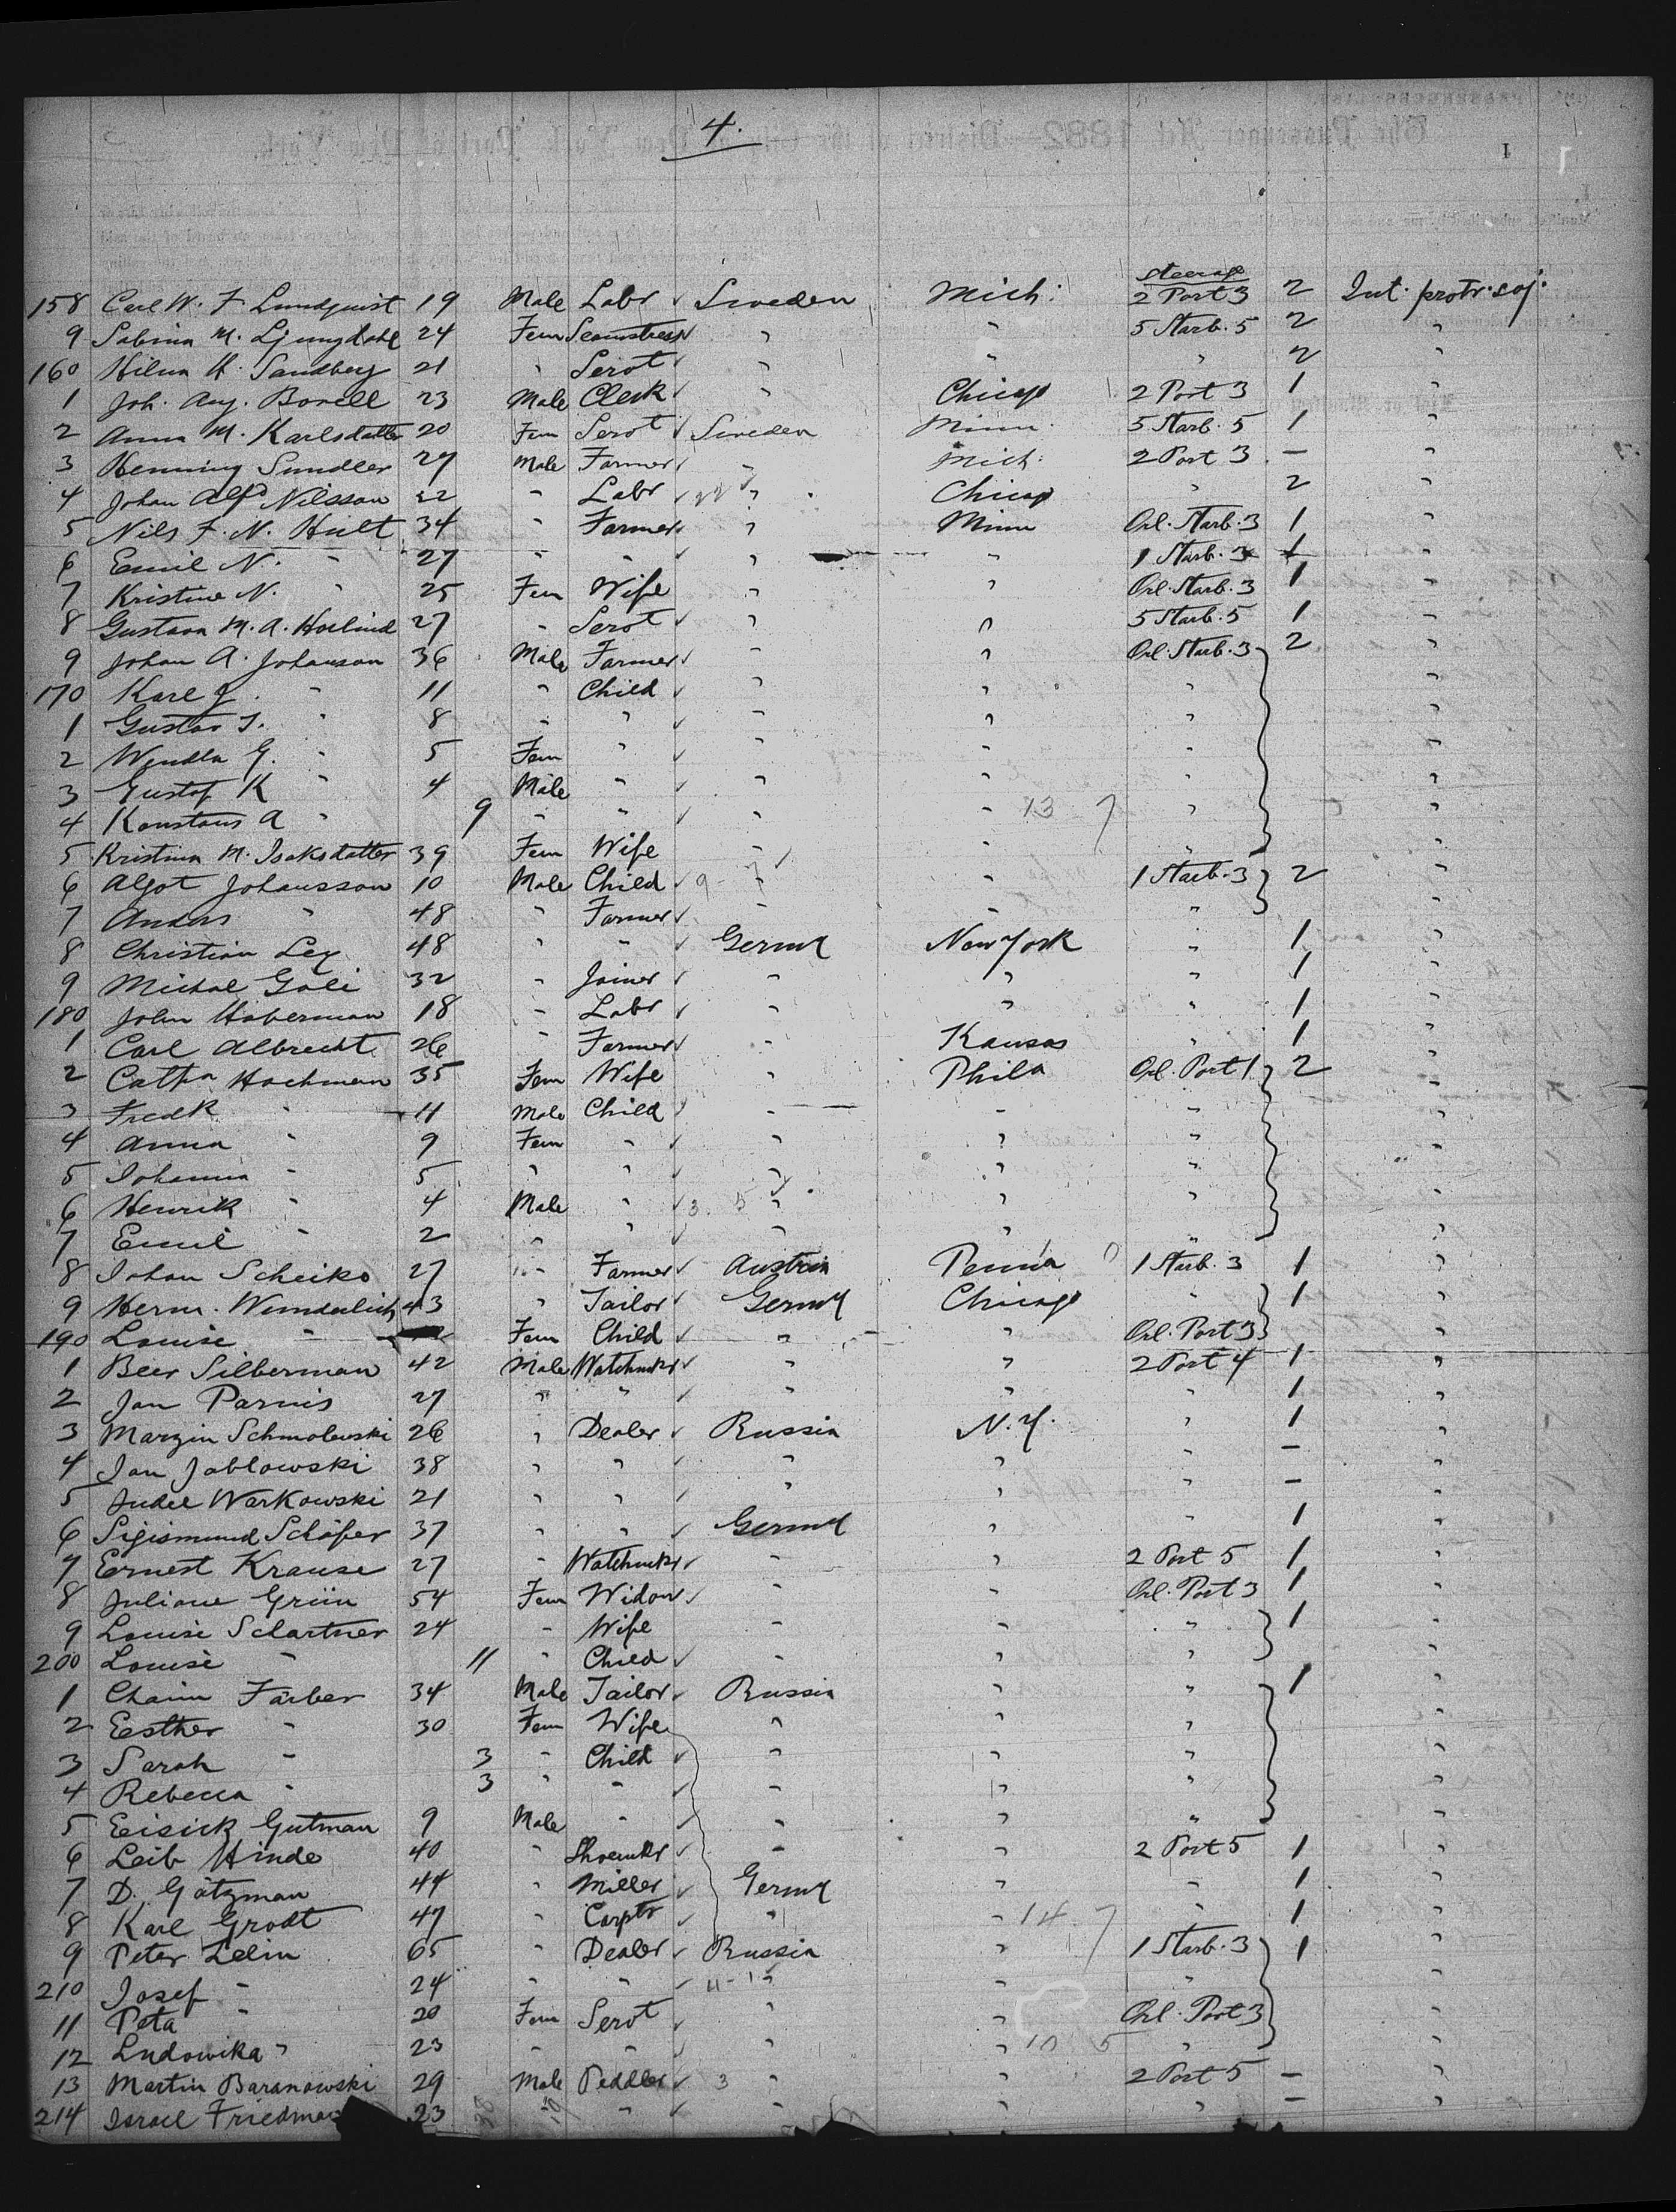 4.
158 Carl W. F. Lundquist 19 Male Labr ✓ Sweden Mich: steerage 2 Port 3 2 Int. protr. soj.
9 Sabina M. Ljungdahl 24 Fem Seamstress ✓ " " 5 Starb. 5 2 "
160 Hilma H. Sandberg 21 " Servt ✓ " " " 2 "
1 Joh. Aug. Borell 23 Male Clerk ✓ " Chicago 2 Port 3 1 "
2 Anna M. Karlsdatter 20 Fem Servt ✓ Sweden Minn. 5 Starb. 5 1 "
3 Henning Sundler 27 Male Farmer ✓ " Mich: 2 Port 3 - "
4 Johan Alf Nilsson 22 " Labr ✓ " Chicago " 2 "
5 Nils F. N. Hult 34 " Farmer ✓ " Minn Orl. Starb. 3 1 "
6 Emil N. " 27 " " ✓ " " 1 Starb. 3 1 "
7 Kristine N. " 25 Fem Wife " " Orl. Starb. 3 1 "
8 Gustava M. A. Hoelind 27 " Servt ✓ " " 5 Starb. 5 1 "
9 Johan A. Johanson 36 Male Farmer ✓ " " Orl. Starb. 3 2 "
170 Karl J. " 11 " Child ✓ " " " "
1 Gustav J. " 8 " " ✓ " " " "
2 Wendla G. " 5 Fem " ✓ " " " "
3 Gustaf K " 4 Male " ✓ " " " "
4 Konstans A " 9 " " ✓ " " 13 7 " "
5 Kristina M. Isaksdatter 39 Fem Wife " " " "
6 Algot Johansson 10 Male Child ✓ 9 - 7 " 1 Starb. 3 2 "
7 Anders " 48 " Farmer ✓ " " " "
8 Christian Ley 48 " " ✓ Germy New York " 1 "
9 Michal Gali 32 " Joiner ✓ " " " 1 "
180 John Haberman 18 " Labr ✓ " " " 1 "
1 Carl Albrecht 26 " Farmer ✓ " Kansas " 1 "
2 Catha Hochman 35 Fem Wife " Phila Orl. Port 1 2 "
3 Fredk " 11 Male Child ✓ " " " "
4 Anna " 9 Fem " ✓ " " " "
5 Johanna " 5 " " ✓ " " " "
6 Henrik " 4 Male " ✓ 3. 5 " " " "
7 Emil " 2 " " ✓ " " " "
8 Johan Scheiko 27 " Farmer ✓ Austria Penna 1 Starb. 3 1 "
9 Herm. Wunderlich 43 " Tailor ✓ Germy Chicago " 1 "
190 Louise " Fem Child ✓ " " Orl. Port 3 "
1 Beer Silberman 42 Male Watchmkr ✓ " " 2 Port 4 1 "
2 Jan Parnis 27 " " ✓ " " " 1 "
3 Marzin Schmolewski 26 " Dealer ✓ Russia N.Y. " 1 "
4 Jan Jablowski 38 " " ✓ " " " - "
5 Judel Warkowski 21 " " ✓ " " " - "
6 Sigismund Schäfer 37 " " ✓ Germy " " 1 "
7 Ernest Krause 27 " Watchmkr ✓ " " 2 Port 5 1 "
8 Juliane Grün 54 Fem Widow ✓ " " Orl. Port 3 1 "
9 Louise Schartner 24 " Wife " " " 1 "
200 Louise " 11 " Child ✓ " " " "
1 Chaim Färber 34 Male Tailor ✓ Russia " " 1 "
2 Eesther " 30 Fem Wife " " " "
3 Sarah " 3 " Child ✓ " " " "
4 Rebecca " 3 " " ✓ " " " "
5 Eisick Gutman 9 Male " ✓ " " " "
6 Leib Hinde 40 " Shoemkr ✓ " " 2 Port 5 1 "
7 D. Götzman 44 " Miller ✓ Germy " " 1 "
8 Karl Grodt 47 " Carptr ✓ " " 14 7 " 1 "
9 Peter Zelin 65 " Dealer ✓ Russia " 1 Starb. 3 1 "
210 Josef " 24 " " ✓ 4 - 1 " " " "
11 Peta " 20 Fem Servt ✓ " " Orl. Port 3 "
12 Ludowika " 23 " " ✓ " " 10 5 " "
13 Martin Baranowski 29 Male Peddler ✓ 3 " " 2 Port 5 - "
214 Israel Friedman 23 " " ✓ " " " - "